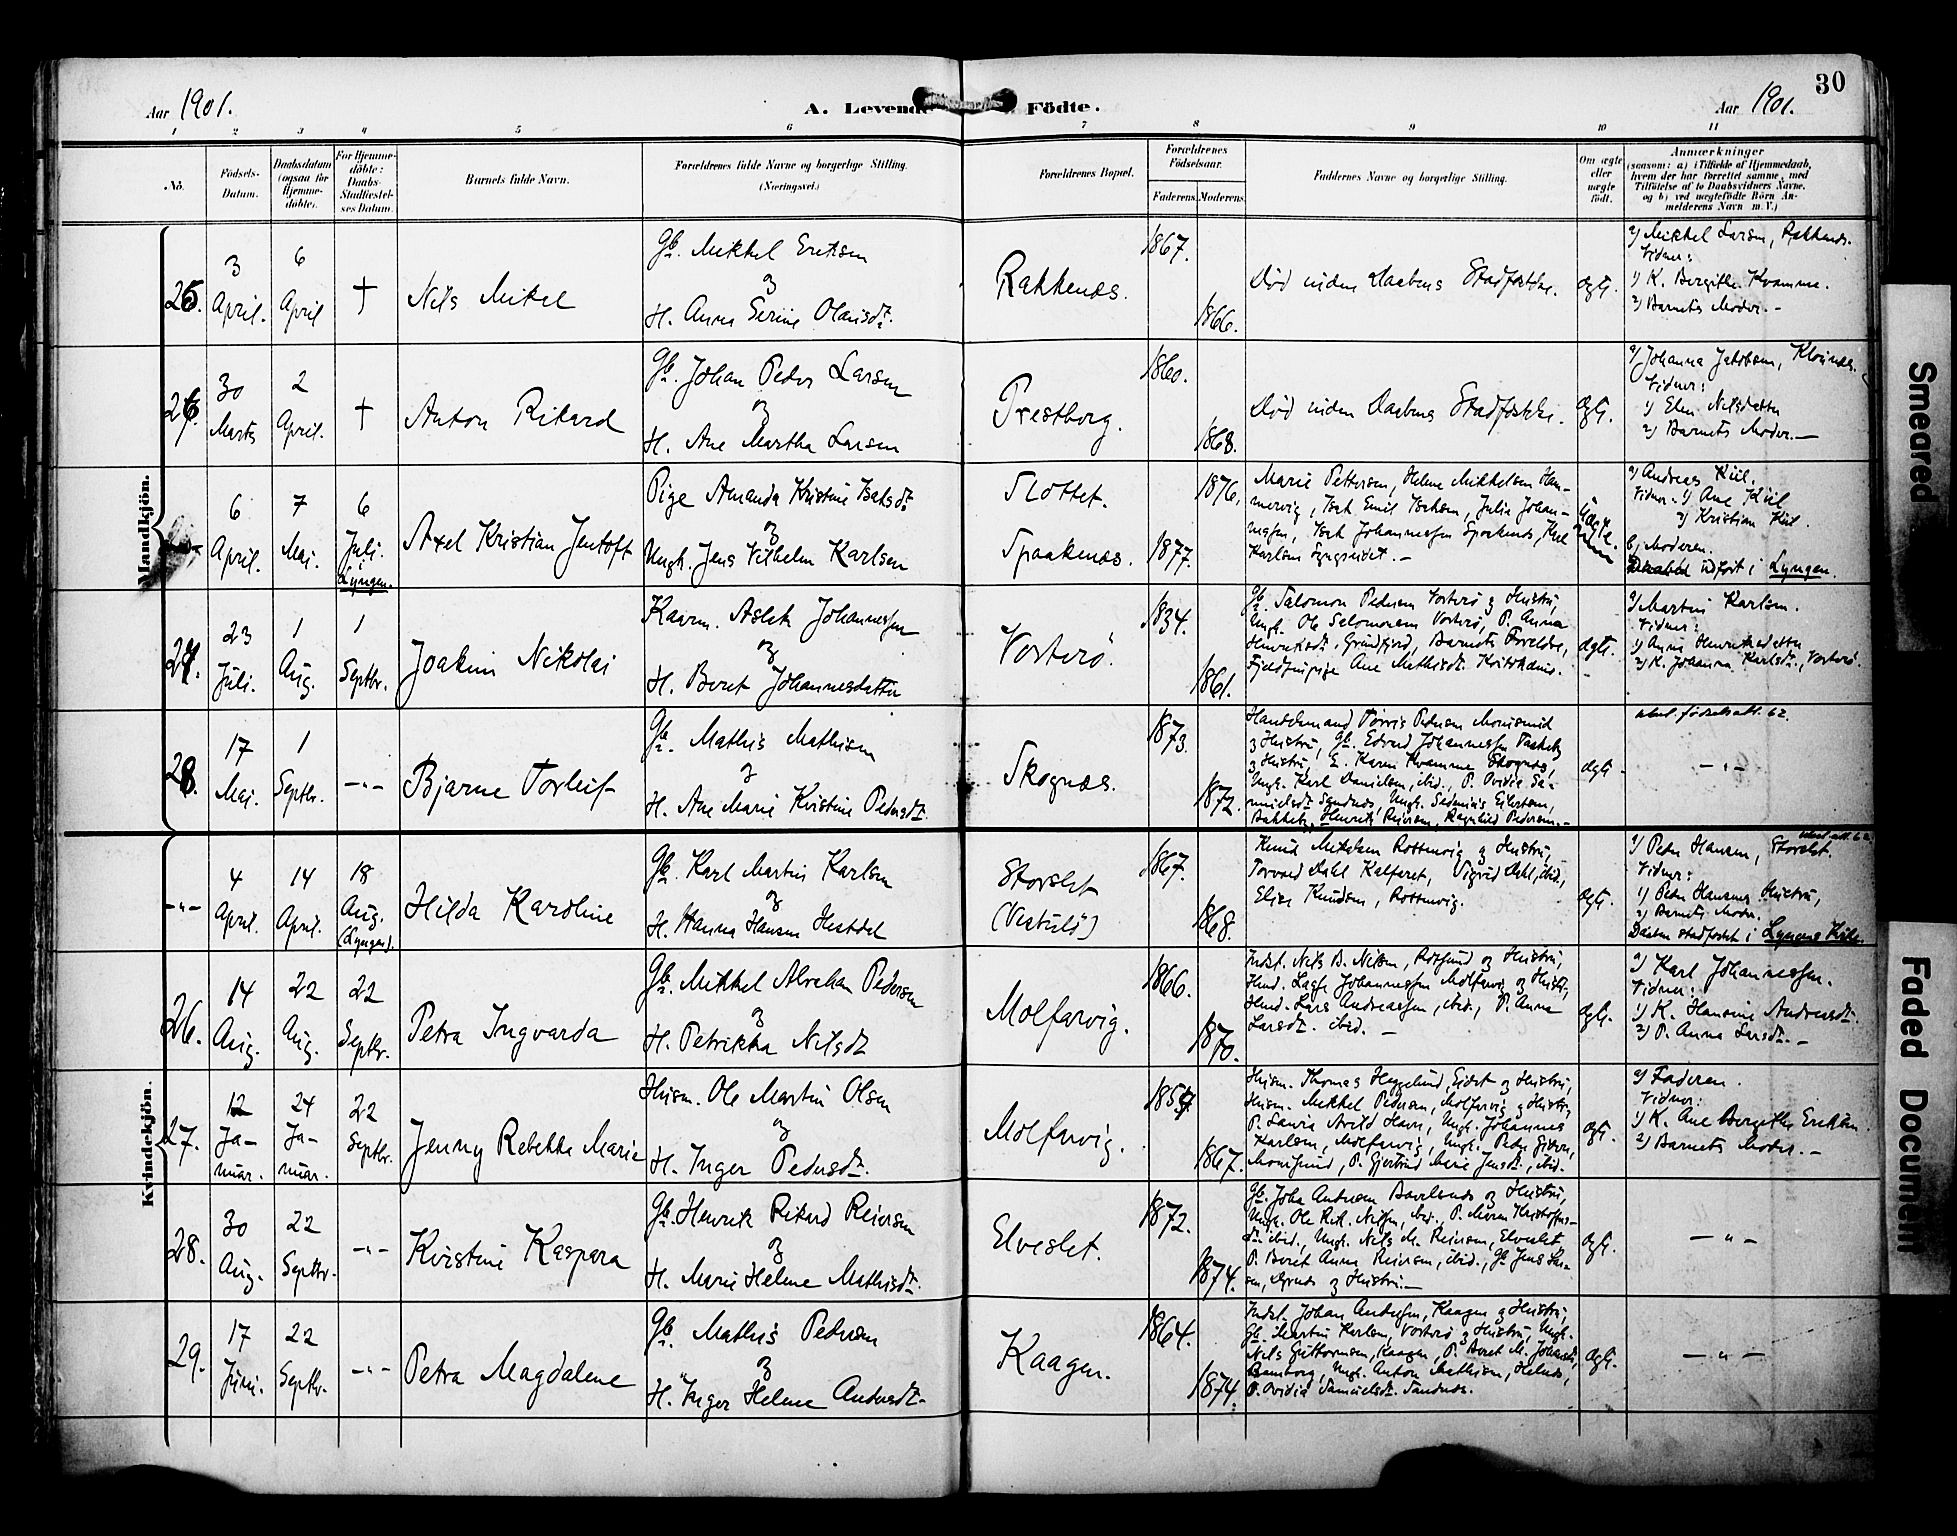 30
Aar 1901.
A. Levende Födte.
Aar 1901.
1 2 3 4 5 6 7 8 9 10 11
No.
Födsels-
Datum.
Daabsdatum
(ogsaa for
Hjemme-
döbte).
For Hjemme-
döbte:
Daabs-
Stadfæstel-
ses Datum.
Barnets fulde Navn.
Forældrenes fulde Navne og borgerlige Stilling.
(Næringsvei.)
Forældrenes Bopæl.
Forældrenes
Födselsaar.
Faderens.
Moderens.
Faddernes Navne og borgerlige Stilling.
Om ægte
eller
uægte
födt.
Anmærkninger
(saasom: a) i Tilfælde af Hjemmedaab,
hvem der har forrettet samme, med
Tilföielse af to Daabsvidners Navne,
og b) ved uægtefödte Börn An-
melderens Navn m. V.)
Mandkjön.
25.
3
April.
6
April
†
Nils Mikel
Gb. Mikkel Eriksen
og
H. Anna Serine Olausdt.
Rakkenæs.
1867.
1866.
Död inden Daabens Stadfæstelse.
ægte.
a) Mikkel Larsen, Rakkenæs.
Vidner:
1) K. Bergithe Kvamme.
2) Barnets Moder.-
26.
30
Marts
2
April.
†
Anton Rikard
Gb. Johan Peder Larsen
og
H. Ane Martha Larsen
Prestborg.
1860.
1868.
Död inden Daabens Stadfæstelse.
ægte.
a) Johanna Jakobsen,
Vidner:
1) Elen Nilsdatter
2) Barnets Moder.-
6
April.
7
Mai.
6
Juli.
i
Lyngen.
Axel Kristian Jentoft
Pige Amanda Kristine Isaksdt.
og
Ungk. Jens Vilhelm Karlsen
Slottet.
Spaakenæs.
1876.
1877.
Marie Pettersen, Helene Mikkelsen Ham-
mervig, Isak Emil Isaksen, Julie Johan-
nesen, Isak Johannessen Spaakenæs,
Karlsen Lyngseidet.-
Uægte.
a) Andreas Kiil.
Vidner. 1) Ane Kiil
2) Kristian Kiil.
b) Moderen.
udfört i Lyngen.
27.
23
Juli.
1
Aug.
1
Septbr.
Joakim Nikolai
Kaarm. Aslak Johannessen
og
H. Beret Johannesdatter
Vorterö.
1834.
1861.
Gb. Salomon Pedersen Vorterö og Hustru,
Ungk. Ole Salomonsen Vorterö, P. Anna
Henriksdt. Grundfjord, Barnets Foreldre,
Fjeldfinpige Ane Mathisdt.
ægte.
a) Martin Karlsen.
Vidner:
1) Anne Henriksdatter
2) K. Johanna Karlsdt., Vorterö.
28.
17
Mai.
1
Septbr.
-"-
Bjarne Torleif
Gb. Mathis Mathisen
og
H. Ane Marie Kristine Pedersdt.
Skognæs.
1873.
1872.
Handelsmand Törris Pedersen
og Hustru, Gb. Edvard Johannessen
og Hustru, E. Karen Kvamme Skognæs,
Ungk. Karl Danielsen, ibid., P. Ovidia Sa-
muelsdt. Sandnæs, Ungk.
Bakkeby, Henrik Reiersen, Ragnhild Pedersen.-
ægte.
födselsatt. 62.
-"-
Kvindekjön.
-"-
4
April.
14
April.
18
Aug.
(Lyngen).
Hilda Karoline
Gb. Karl Martin Karlsen
og
H. Hanna Hansen Hestdal
Storslet
1867.
1868.
Knud Mikalsen Rottenvig og Hustru,
Torvard Dahl Kalfaret, Sigrid Dahl, ibid.,
Elise Knudsen, Rottenvig.
ægte.
a) Peder Hansen, Storslet.
Vidner:
1) Peder Hansens Hustru,
2) Barnets Moder.
Daaben stadfæstet i Lyngens Kirke.
26.
14
Aug.
22
Aug.
22
Septbr.
Petra Ingvarda
Gb. Mikkel Abraham Pedersen
og
H. Petrikka Nilsdt.
Molfarvig.
1866.
1870.
Indst. Nils B. Nilsen, Rotsund og Hustru,
Lasse Johannessen Molfarvig og Hustru,
Lars Andreassen, ibid., P. Anna
Larsdt. ibid. -
ægte.
a) Karl Johannessen.
Vidner:
1) K. Hansine Andreasdt.
2) P. Anna Larsdt.-
27.
12
Ja-
nuar.
24
Ja-
nuar.
22
Septbr.
Jenny Rebekka Marie
Husm. Ole Martin Olsen
og
H. Inger Pedersdt.
Molfarvig.
1859.
1867.
Husm. Thomas Heggelund, Eidet og Hustru,
Husm. Mikkel Pedersen, Molfarvig og Hustru,
P. Laura Havn, Ungk. Johannes
Karlsen, Molfarvig, Ungk. Peder
P. Gjertrud Marie Jensdt., ibid.
ægte.
a) Faderen.
Vidner:
1) K. Ane Bergithe Eriksen
2) Barnets Moder.-
28.
30
Aug.
22
Septbr.
-"-
Kristine Kaspara
Gb. Henrik Rikard Reiersen
og
H. Marie Helene Mathisdt.
Elveslet.
1872.
1874.
Gb. Johan Andersen og Hustru,
Ungk. Ole Rik. Nilsen, ibid., P. Maren Kristoffers-
dt. ibid., Ungk. Nils M. Reiersen, Elveslet
P. Beret Anna Reiersen, ibid., Gb. Jens Lar-
sen, og Hustru.-
ægte.
-"-
29.
17
Juni.
22
Septbr.
-"-
Petra Magdalene
Gb. Mathis Pedersen
og
H. Inger Helene Andersdt.
Kaagen.
1864.
1874.
Indst. Johan Andersen, Kaagen og Hustru,
Gb. Martin Karlsen, Vorterö og Hustru, Ungk.
Nils Guttormsen, Kaagen, P. Beret M.
Ungk. Anton Mathisen, Helnæs,
P. Ovidia Samuelsdt. Sandnæs.
ægte.
-"-
Smeared
Faded Document